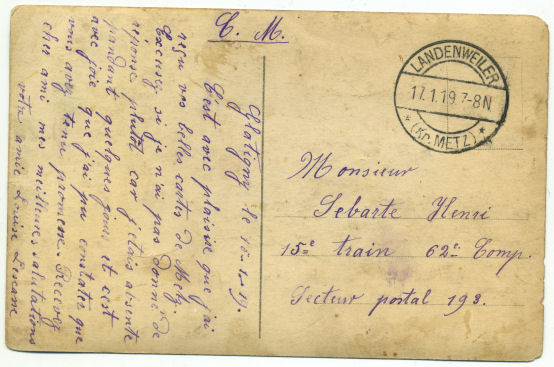 C. M.
LANDENWEILER
17.1.19.7-8N
* (Kr. METZ) *
Glatigny le
C'est avec plaisir que j'ai
reçu vos belles cartes de Metz.
Excusez si je n'ai pas donné de
réponse plutôt car j'étais absente
pendant quelques jours et c'est
avec joie que j'ai pu constater que
vous avez tenu promesse. Recevez
cher ami mes meilleures salutations
votre amie Louise
Monsieur
Sebarte Henri
15e train 62e Comp.
Secteur postal 193.